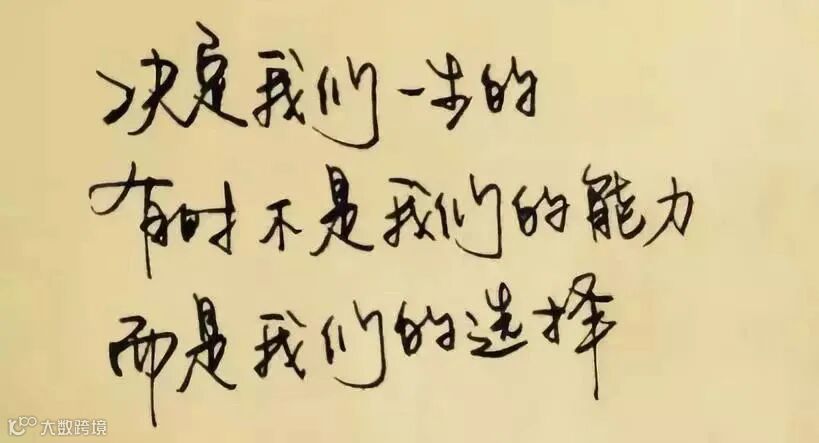 决定我们一步的
有时不是我们的能力
而是我们的选择
大数跨境